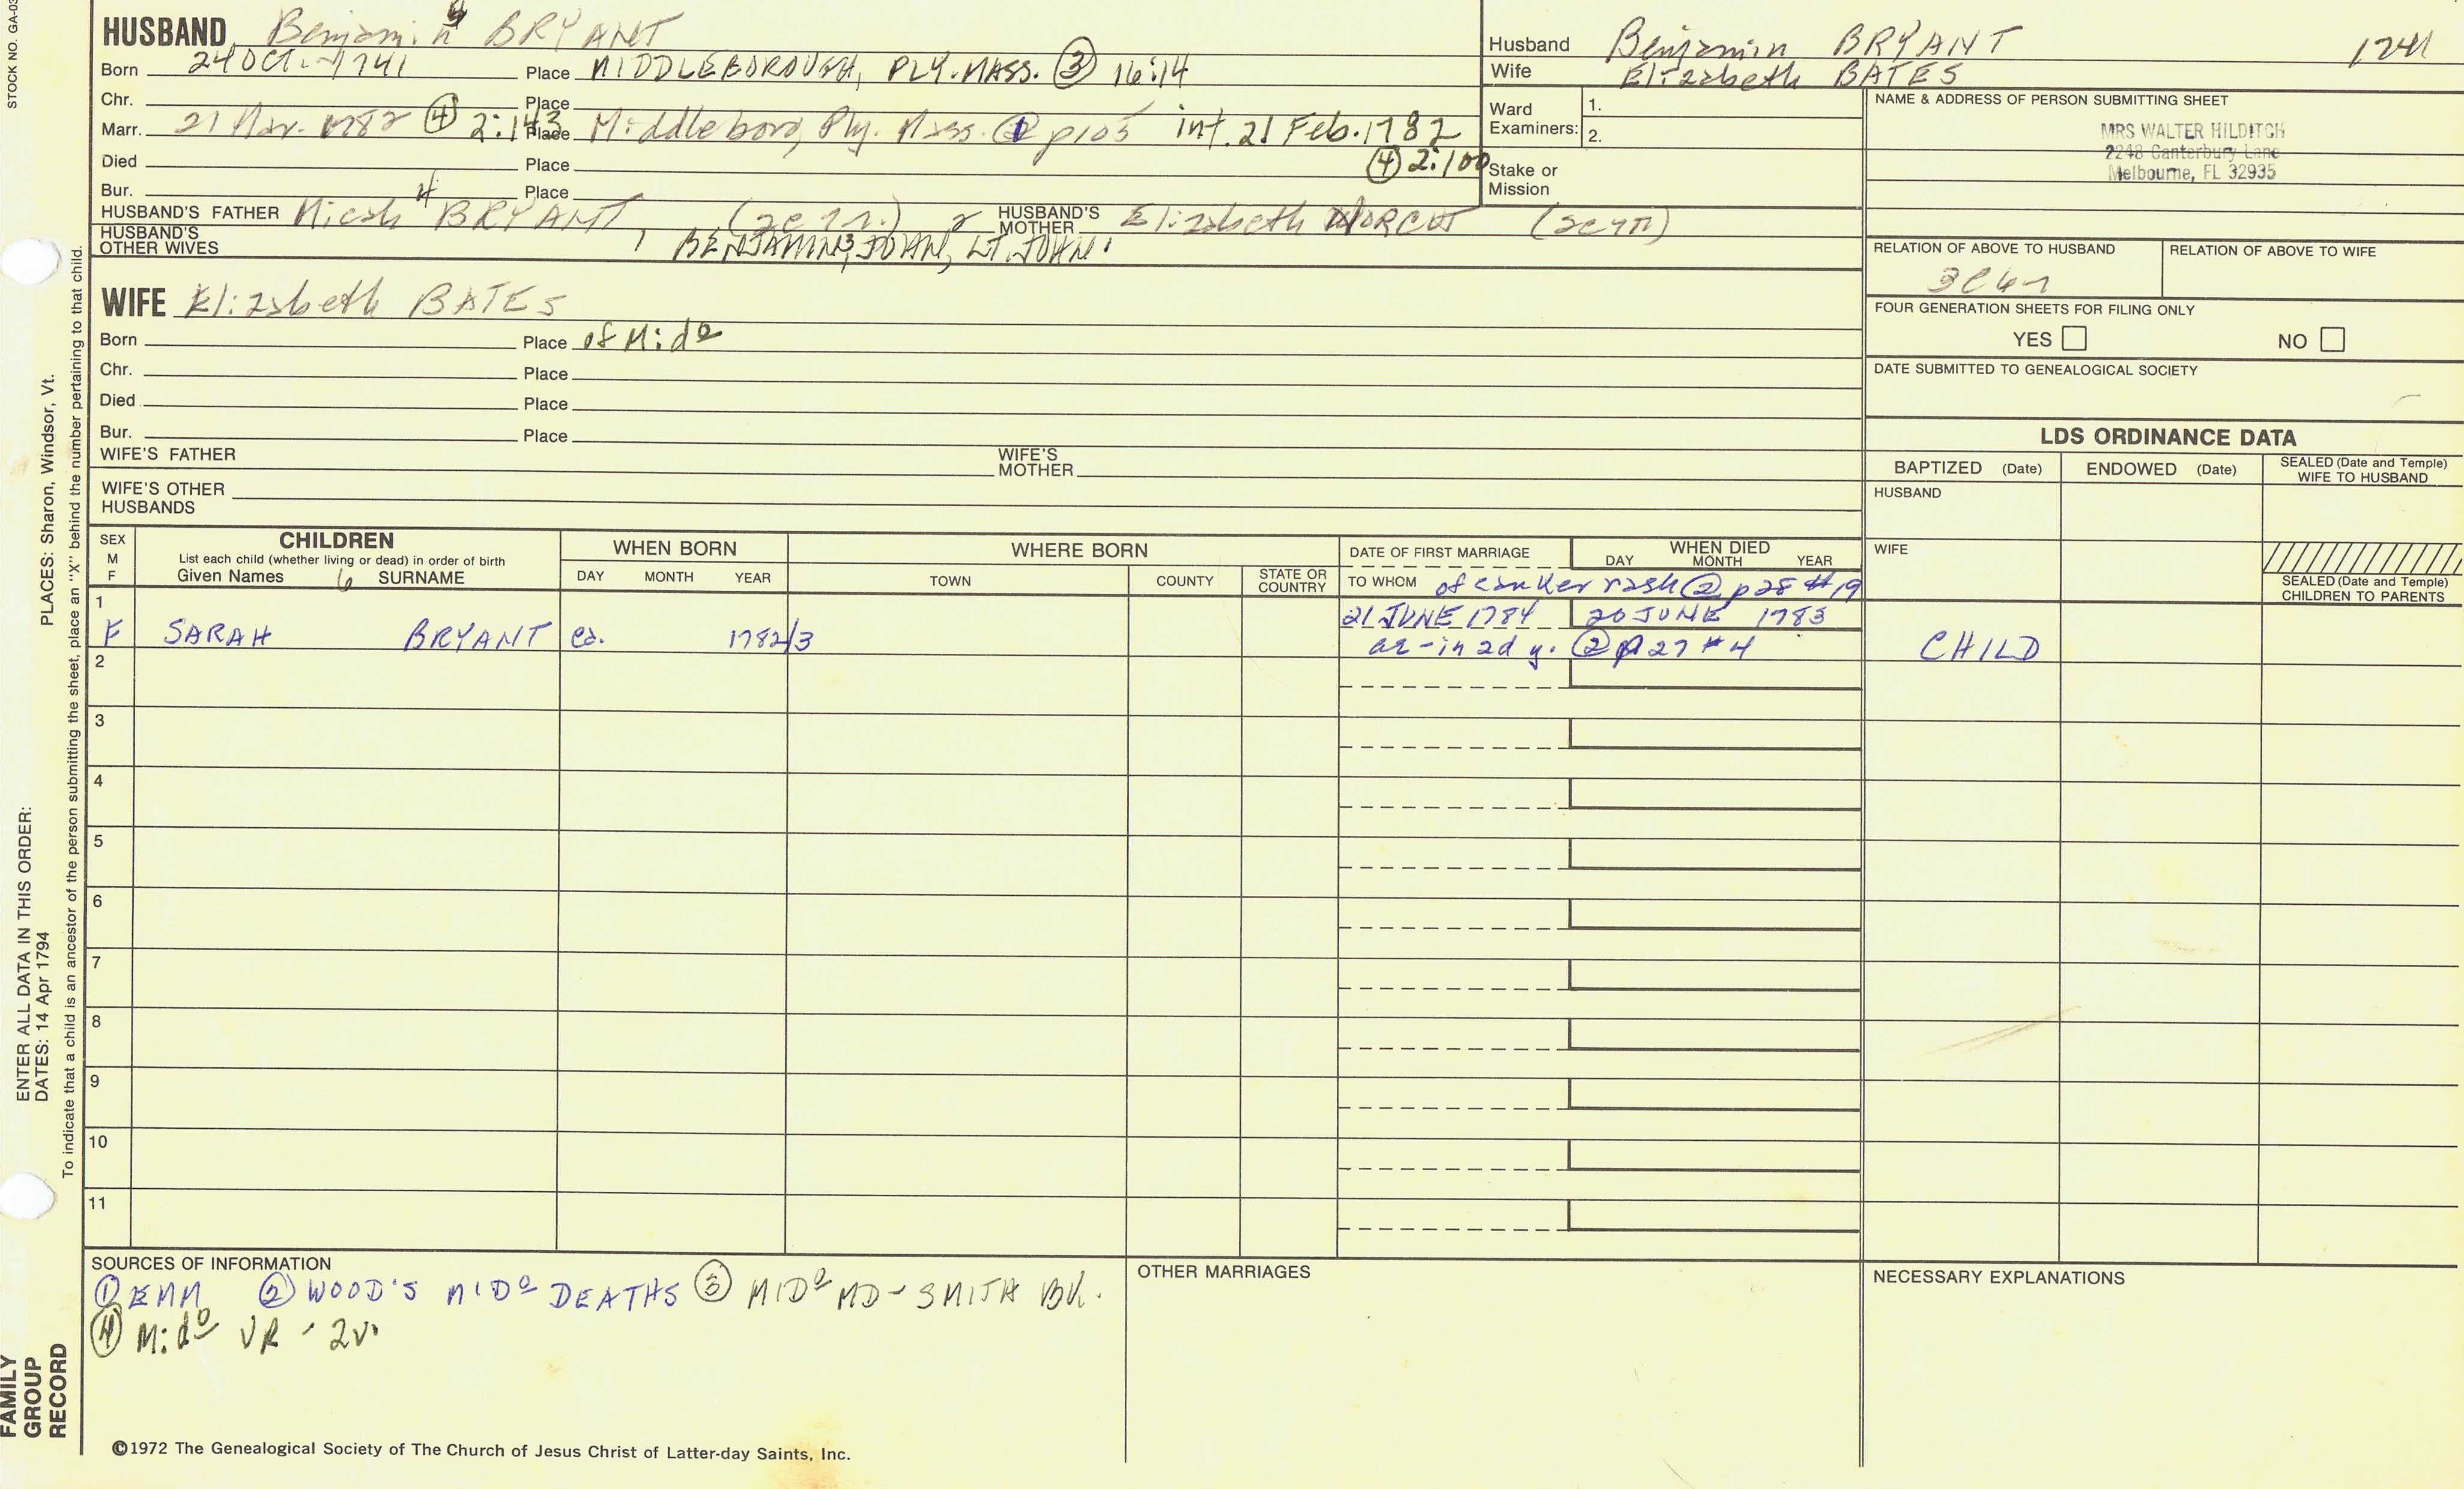 STOCK NO. GA-03
HUSBAND Benjamin BRYANT
Born 24 OCT. 1741 Place MIDDLEBOROUGH, PLY. MASS. ③ 16:14
Chr. Place
Marr. 21 Mar. 1782 ④ 2:143 Place Middleboro, Ply. Mass. ① p105 int. 21 Feb. 1782
④ 2:100
Died Place
Bur. Place
HUSBAND'S FATHER Micah 4 BRYANT HUSBAND'S MOTHER Elizabeth
HUSBAND'S OTHER WIVES
BENJAMIN3, JOHN, LT. JOHN1
Husband Benjamin BRYANT 1741
Wife Elizabeth BATES
Ward Examiners: 1.
2.
Stake or Mission
NAME & ADDRESS OF PERSON SUBMITTING SHEET
MRS WALTER HILDITCH
2248 Canterbury Lane
Melbourne, FL 32935
RELATION OF ABOVE TO HUSBAND RELATION OF ABOVE TO WIFE
FOUR GENERATION SHEETS FOR FILING ONLY
YES NO
DATE SUBMITTED TO GENEALOGICAL SOCIETY
WIFE Elizabeth BATES
Born Place of Midº
Chr. Place
Died Place
Bur. Place
WIFE'S FATHER WIFE'S MOTHER
WIFE'S OTHER HUSBANDS
LDS ORDINANCE DATA
BAPTIZED (Date) ENDOWED (Date) SEALED (Date and Temple) WIFE TO HUSBAND
HUSBAND
WIFE
SEALED (Date and Temple) CHILDREN TO PARENTS
SEX M F
CHILDREN
List each child (whether living or dead) in order of birth
Given Names 6 SURNAME
WHEN BORN
DAY MONTH YEAR
WHERE BORN
TOWN COUNTY STATE OR COUNTRY
DATE OF FIRST MARRIAGE
TO WHOM
WHEN DIED
DAY MONTH YEAR
of canker rash ② p28 #19
1
F SARAH BRYANT ca. 1782/3 21 JUNE 1784 20 JUNE 1783
ae - in 2d y. ② p27 #4 CHILD
2
3
4
5
6
7
8
9
10
11
SOURCES OF INFORMATION
① EMM ② WOOD'S MIDº DEATHS ③ MIDº MD - SMITH BK.
④ Midº VR - 2v.
OTHER MARRIAGES
NECESSARY EXPLANATIONS
©1972 The Genealogical Society of The Church of Jesus Christ of Latter-day Saints, Inc.
ENTER ALL DATA IN THIS ORDER:
DATES: 14 Apr 1794 PLACES: Sharon, Windsor, Vt.
To indicate that a child is an ancestor of the person submitting the sheet, place an "X" behind the number pertaining to that child.
FAMILY
GROUP
RECORD